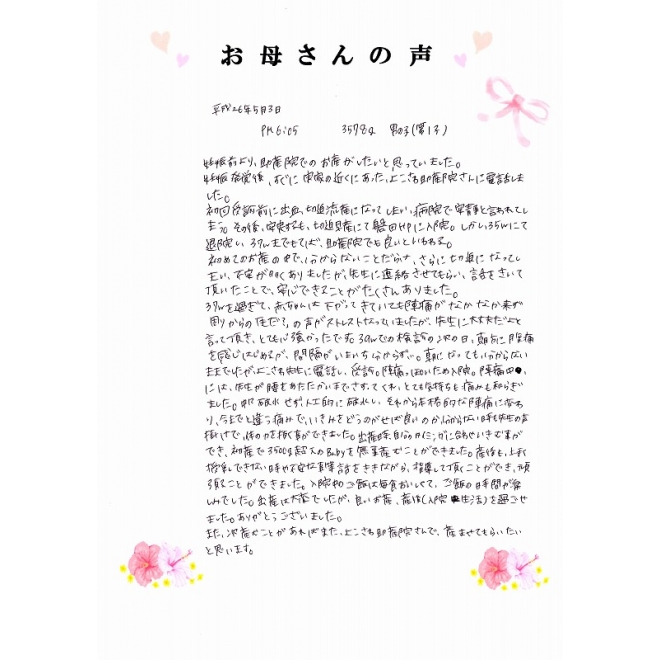 お母さんの声
平成26年5月3日
PM6:05 3578g 男の子(第1子)
妊娠前より、助産院でのお産がしたいと思っていました。
妊娠発覚後、すぐに実家の近くにあった、よこさち助産院さんに電話しま
した。
初回受診前に出血、切迫流産になってしまい、病院で安静と言われてし
まう。その後、安定するも、切迫早産にて磐田HPに入院。しかし、35wにて
退院し、37wまでもてば、助産院でも良いといわれる。
初めてのお産の中で、分からないことだらけ、さらに切迫になって
しまい、不安が多くありましたが、先生に連絡させてもらい、話をきいて
頂いたことで、安心できることがたくさんありました。
37wを過ぎて、赤ちゃんは下がってきていても陣痛がなかなか来ず
周りからの「まだ?」の声がストレスとなっていましたが、先生に大丈夫だよと
言って頂き、とても心強かったです。39wでの検診の次の日、朝方に腹痛
を感じはじめるが、間隔がいまいち分からず…。朝になっても分からない
ままでしたが、よこさち先生に電話し、受診。陣痛っぽいため入院。陣痛中
には、先生が腰をあたたかい手でさすってくれ、とても気持ちも痛みも和らぎ
ました。中々破水せず、人工的に破水し、それから本格的な陣痛に変わ
り、今までと違う痛みで、いきみをどうのがせば良いのか分からない時も先生の声
掛けで、体の力を抜く事ができました。出産時、自分のタイミングに合わせいきむ事が
でき、初産で3500g超えのBabyを無事産むことができました。産後も、上手く
授乳できない時や不安な事等話をききながら、指導して頂くことができ、頑
張ることができました。入院中のご飯は毎食おいしくて、ご飯の時間が楽
しみでした。出産は大変でしたが、良いお産、産後(入院生活)を過ごせ
ました。ありがとうございました。
また、次産むことがあればまた、よこさち助産院さんで、産ませてもらいたい
と思います。